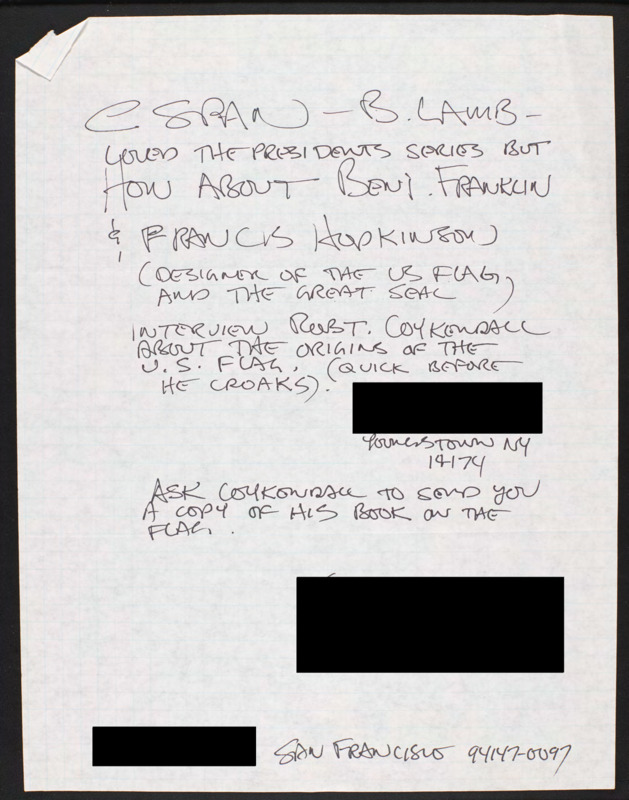 C SPAN – B. LAMB –
LOVED THE PRESIDENTS SERIES BUT
HOW ABOUT BENJ. FRANKLIN
& FRANCIS HOPKINSON
(DESIGNER OF THE US FLAG,
AND THE GREAT SEAL)
INTERVIEW ROBT. COYKENDALL
ABOUT THE ORIGINS OF THE
U.S. FLAG. (QUICK BEFORE
HE CROAKS).
YOUNGSTOWN NY
14174
ASK COYKENDALL TO SEND YOU
A COPY OF HIS BOOK ON THE
FLAG.
SAN FRANCISCO 94147-0097